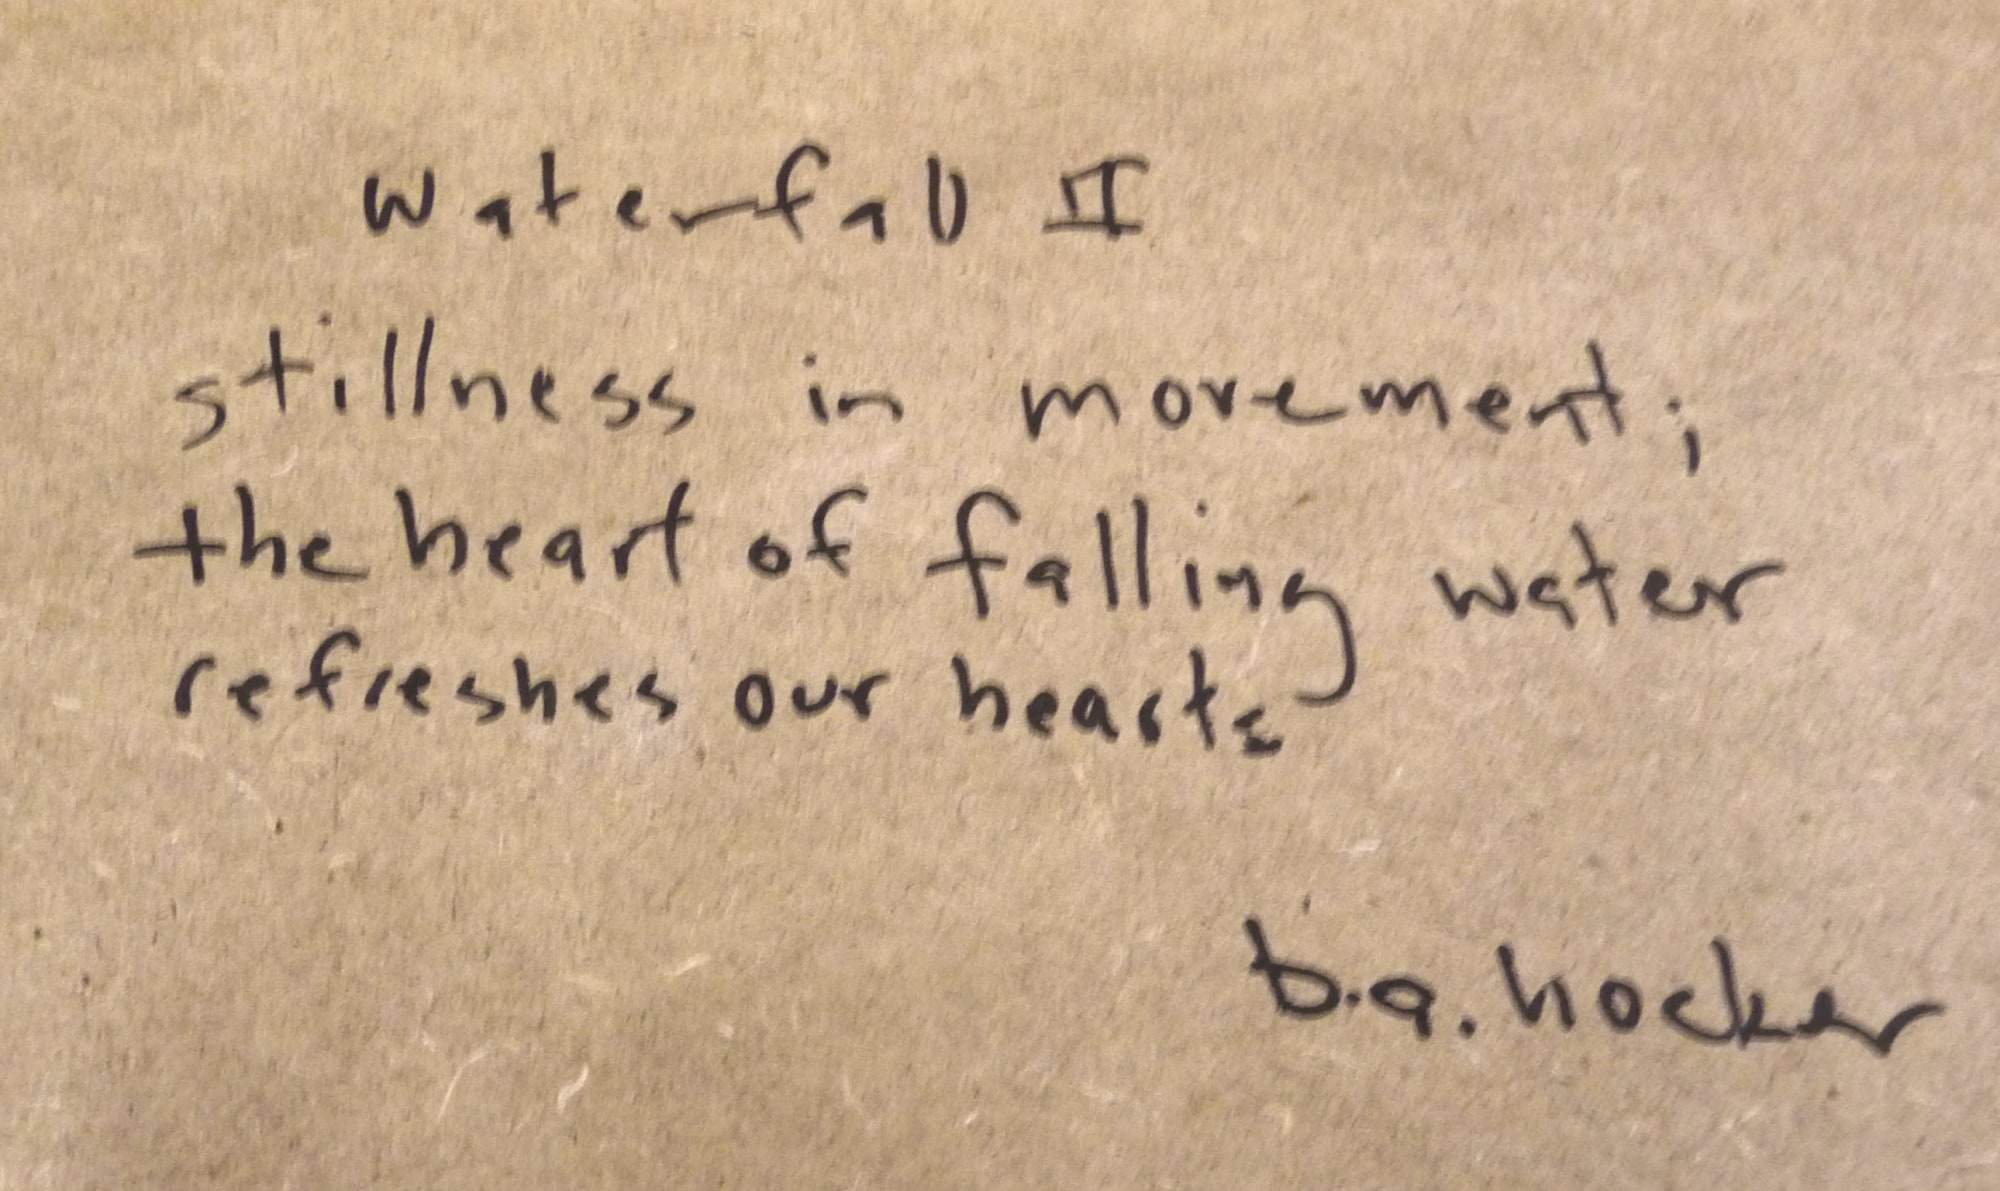 waterfall II
stillness in movement;
the heart of falling water
refreshes our hearts
b.a. hocker